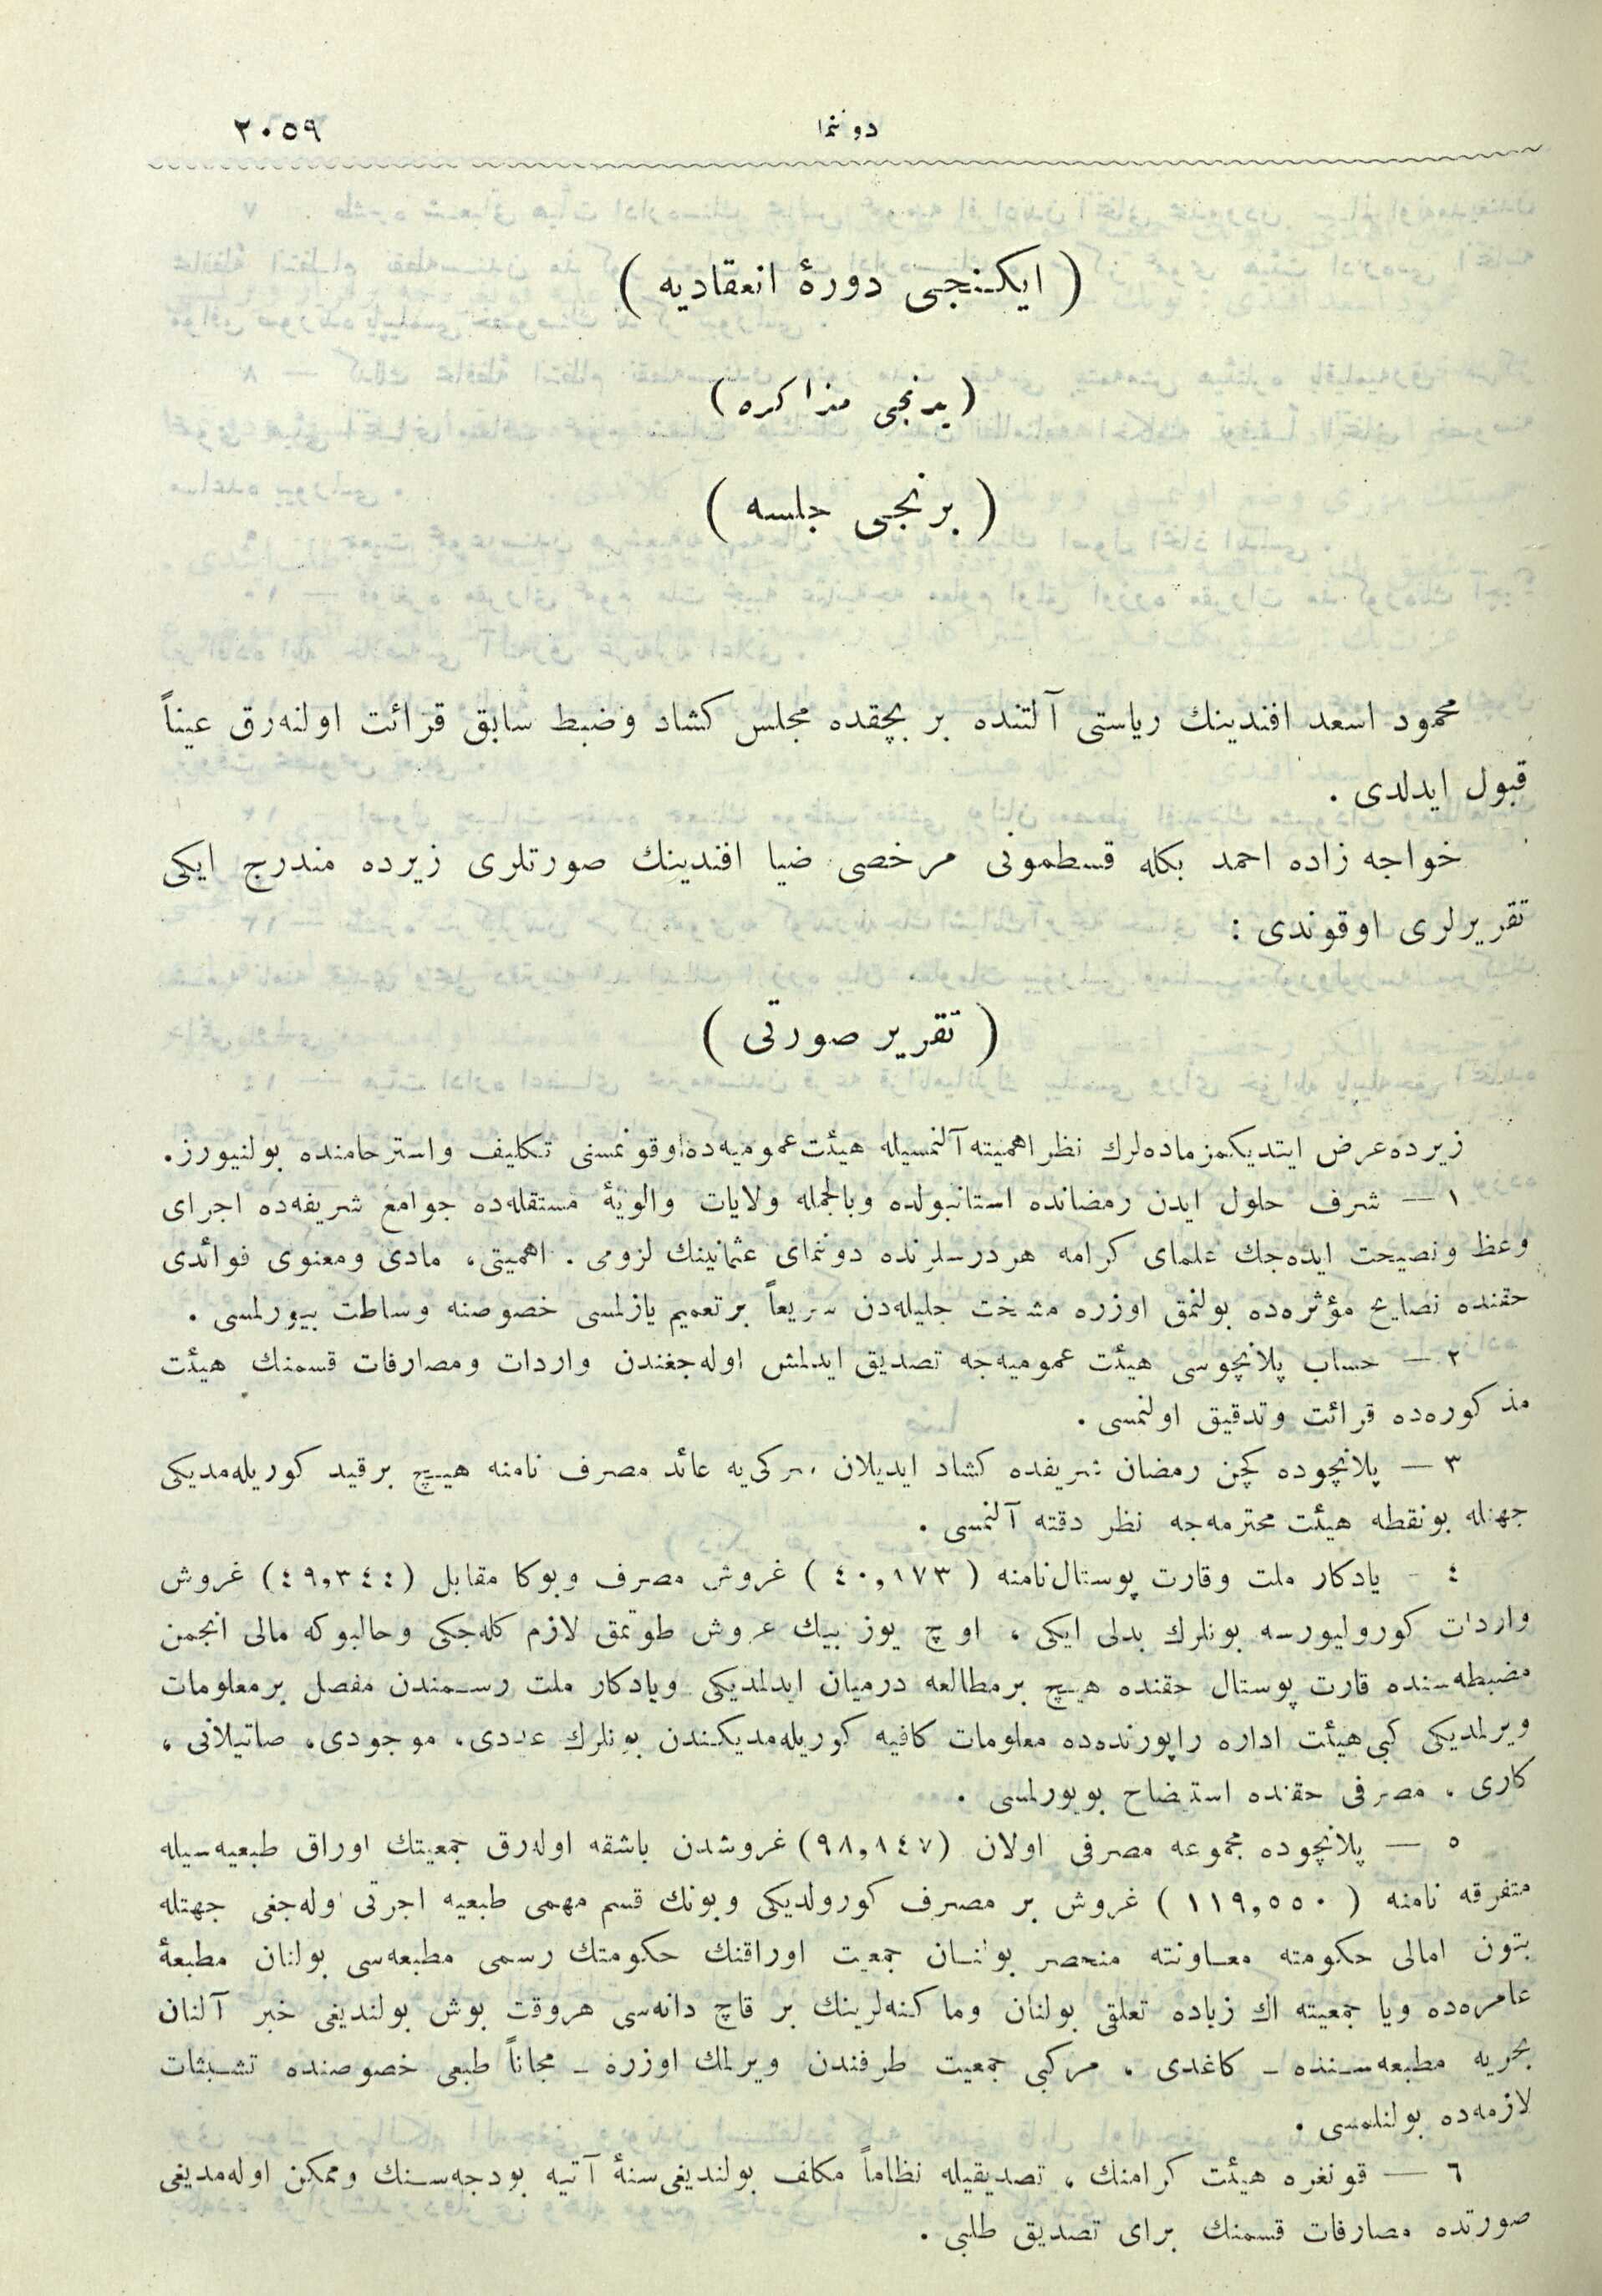 دوننما ٢٠٥٩
( ايكنجى دورۀ انعقاديه )
( يدنجى مذاكره )
( برنجى جلسه )
محمود اسعد افندينك رياستى آلتنده بر بچقده مجلس كشاد وضبط سابق قرائت اولنه‌رق عيناً
قبول ايدلدى .
خواجه زاده احمد بكله قسطمونى مرخصى ضيا افندينك صورتلرى زيرده مندرج ايكى
تقريرلرى اوقوندى :
( تقرير صورتى )
زيرده‌عرض ايتديكمزماده‌لرك نظر اهميته‌آلنمسيله هيئت‌عموميه‌ده‌اوقونمسنى تكليف واسترحامنده بولنيورز.
١ — شرف حلول ايدن رمضانده استانبولده وبالجمله ولايات والويۀ مستقله‌ده جوامع شريفه‌ده اجراى
وعظ ونصيحت ايده‌جك علماى كرامه هردرسلرنده دوننماى عثمانينك لزومى . اهميتى، مادى ومعنوى فوائدى
حقنده نصايح مؤثره‌ده بولنمق اوزره مشيخت جليله‌دن سريعاً برتعميم يازلمسى خصوصنه وساطت بيورلمسى .
٢ — حساب پلانچوسى هيئت عموميه‌جه تصديق ايدلمش اوله‌جغندن واردات ومصارفات قسمنك هيئت
مذكوره‌ده قرائت وتدقيق اولنمسى .
٣ — پلانچوده كچن رمضان شريفده كشاد ايديلان سركى‌يه عائد مصرف نامنه هيچ برقيد كوريله‌مديكى
جهتله بونقطه هيئت محترمه‌جه نظر دقته آلنمسى .
٤ - يادكار ملت وقارت پوستال‌نامنه ( ٤٠,١٧٣ ) غروش مصرف وبوكا مقابل (٤٩,٣٤٤) غروش
واردات كورولیورسه بونلرك بدلى ايكى ، اوچ يوز بيك غروش طوتمق لازم كله‌جكى وحالبوكه مالى انجمن
مضبطه‌سنده قارت پوستال حقنده هيچ برمطالعه درميان ايدلمديكى ويادكار ملت رسمندن مفصل برمعلومات
ويرلمديكى كبى‌هيئت اداره راپورنده‌ده معلومات كافيه كوريله‌مديكندن بونلرك عددى، موجودى، صاتيلانى ،
كارى ، مصرفى حقنده استيضاح بويورلمسى .
٥ — پلانچوده مجموعه مصرفى اولان (٩٨,٨٤٧) غروشدن باشقه اوله‌رق جمعيتك اوراق طبعيه‌سيله
متفرقه نامنه ( ١١٩,٥٥٠ ) غروش بر مصرف كورولديكى وبونك قسم مهمى طبعيه اجرتى اوله‌جغى جهتله
بتون امالى حكومته معاونته منحصر بولنان جمعيت اوراقنك حكومتك رسمى مطبعه‌سى بولنان مطبعۀ
عامره‌ده ويا جمعيته اك زياده تعلقى بولنان وماكنه‌لرينك بر قاچ دانه‌سى هروقت بوش بولنديغى خبر آلنان
بحريه مطبعه‌سنده ـ كاغدى ، مركبى جمعيت طرفندن ويرلمك اوزره ـ مجاناً طبعى خصوصنده تشبثات
لازمه‌ده بولنلمسى .
٦ — قونغره هيئت كرامنك ، تصديقيله نظاماً مكلف بولنديغى‌سنۀ آتيه بودجه‌سنك وممكن اوله‌مديغى
صورتده مصارفات قسمنك براى تصديق طلبى .